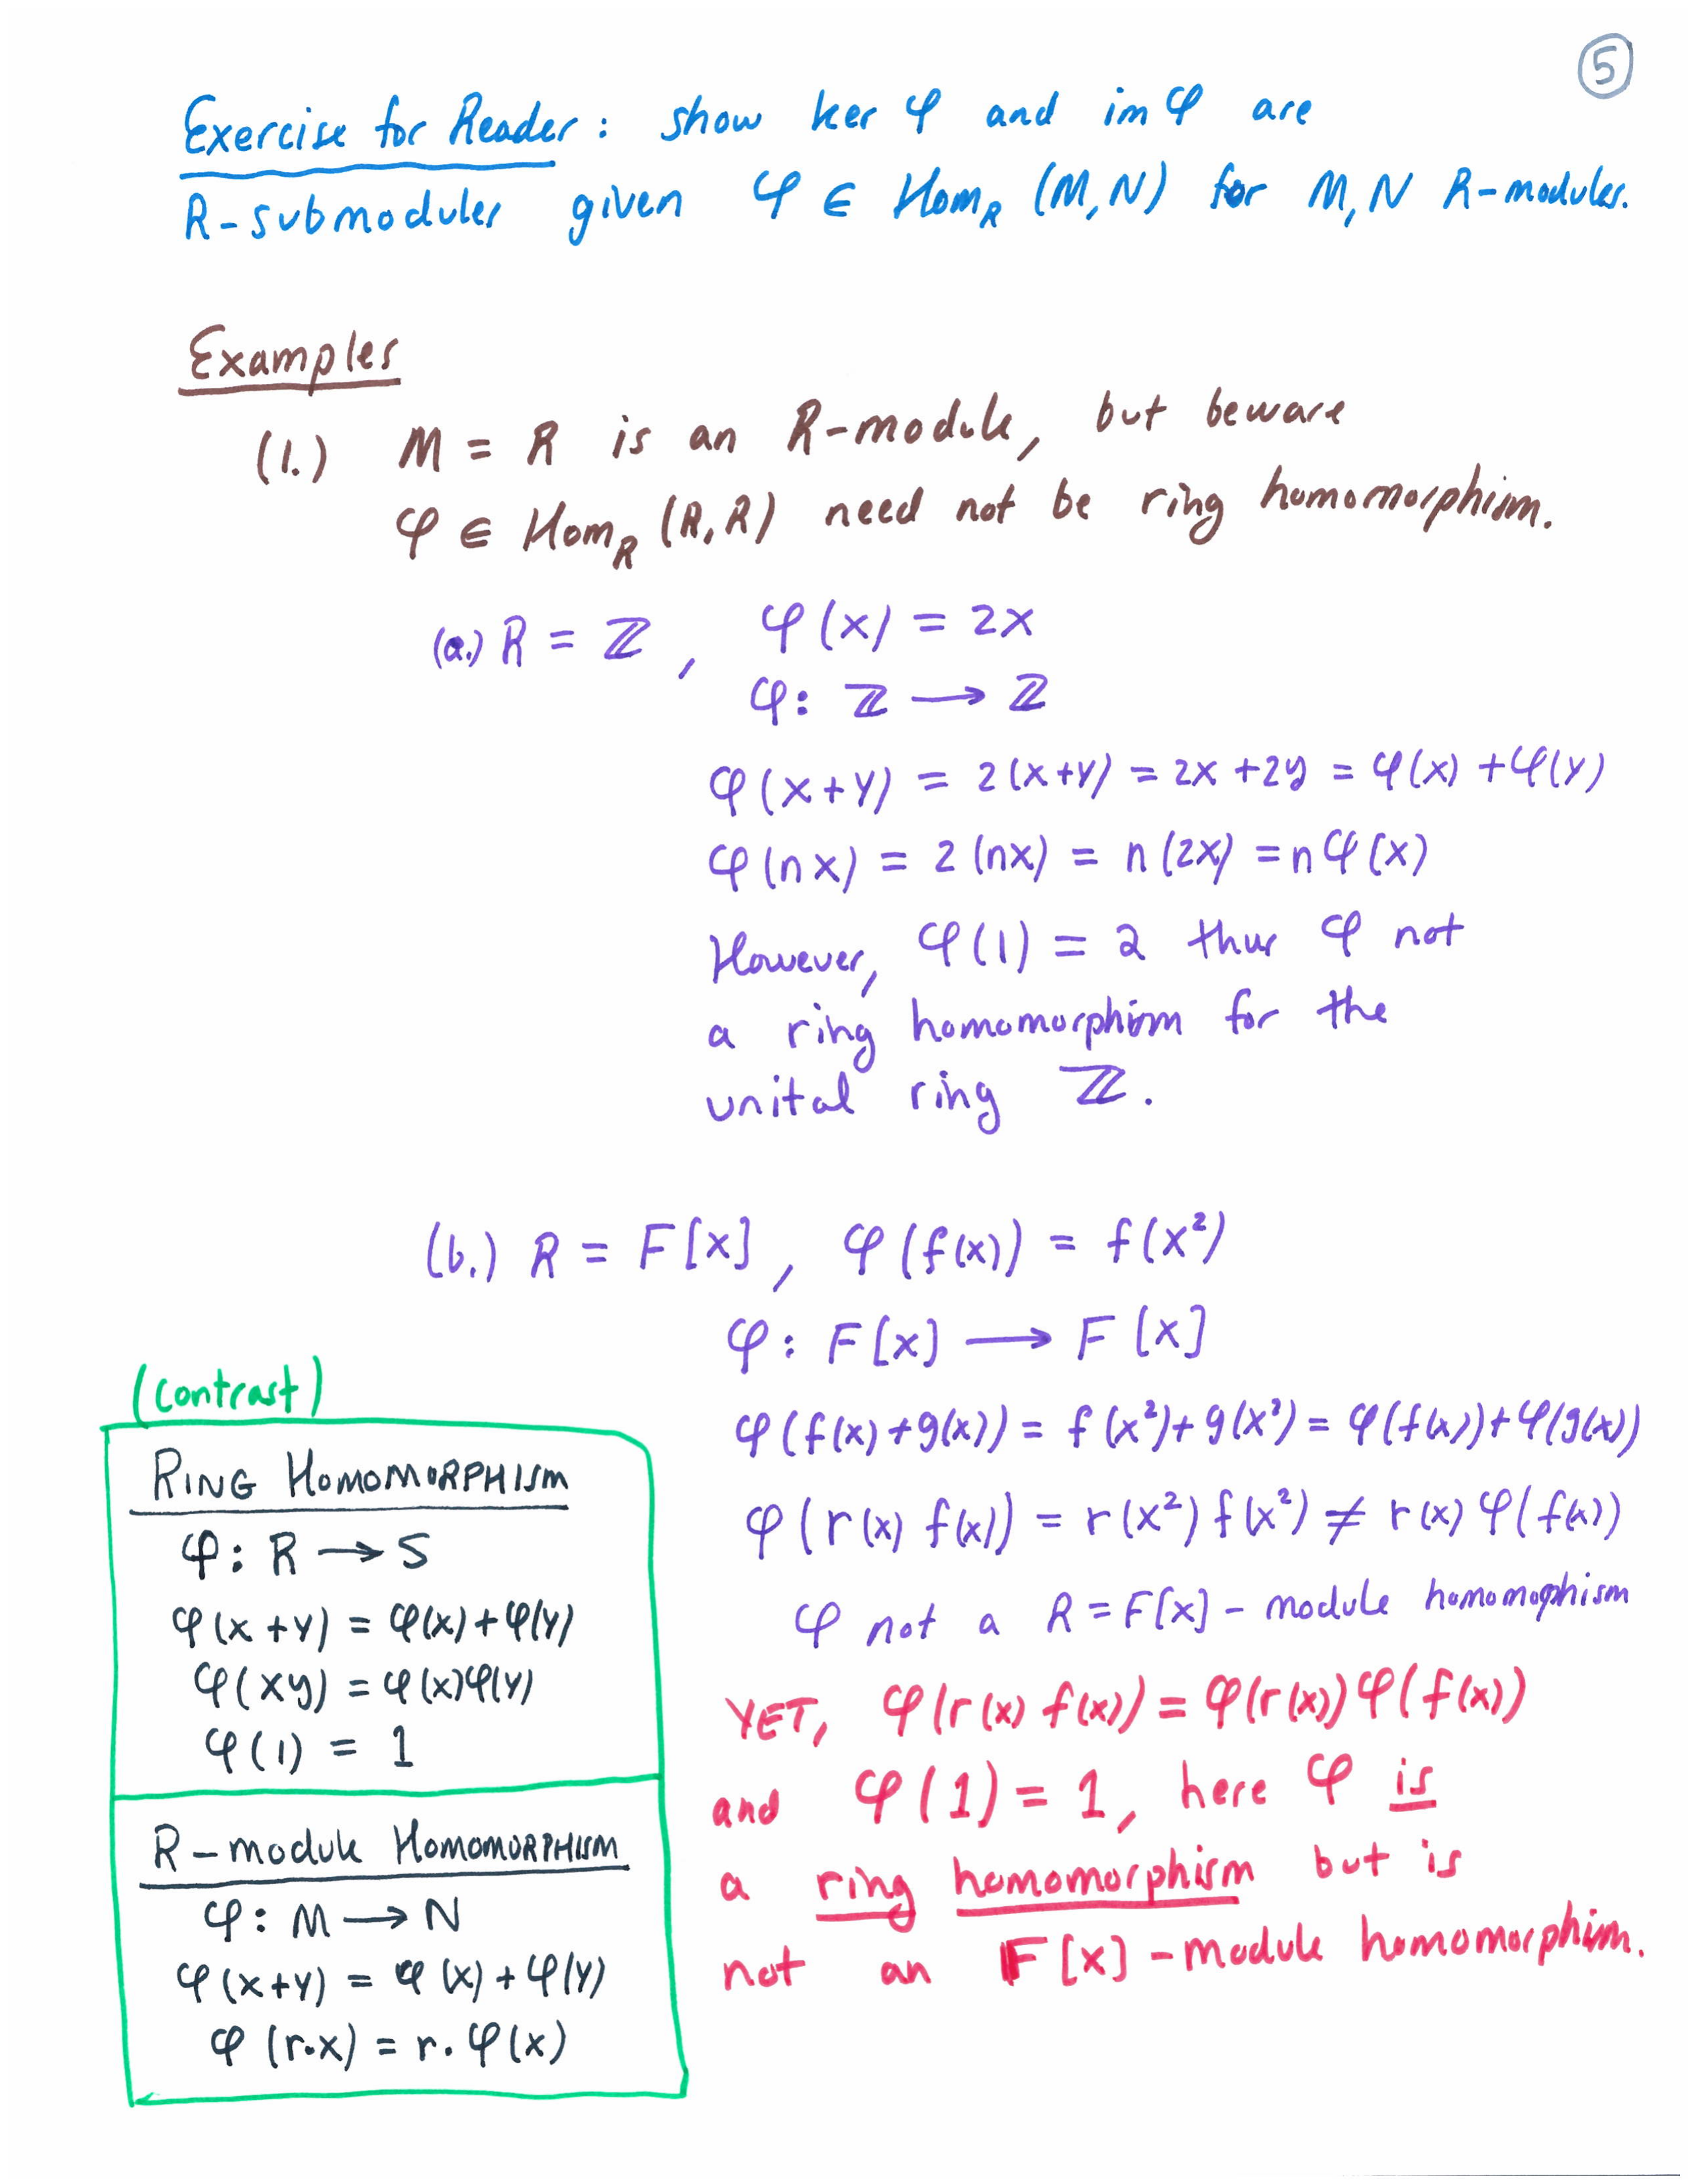 5
Exercise for Reader: show ker φ and im φ are
R-submodules given φ ∈ Hom_R (M,N) for M,N R-modules.
Examples
(1.) M = R is an R-module, but beware
φ ∈ Hom_R (R,R) need not be ring homomorphism.
(a.) R = ℤ, φ(x) = 2x
φ: ℤ → ℤ
φ(x+y) = 2(x+y) = 2x+2y = φ(x)+φ(y)
φ(nx) = 2(nx) = n(2x) = nφ(x)
However, φ(1) = 2 thus φ not
a ring homomorphism for the
unital ring ℤ.
(b.) R = F[x], φ(f(x)) = f(x²)
φ: F[x] → F[x]
φ(f(x)+g(x)) = f(x²)+g(x²) = φ(f(x))+φ(g(x))
φ(r(x) f(x)) = r(x²) f(x²) ≠ r(x) φ(f(x))
φ not a R = F[x] - module homomophism
YET, φ(r(x) f(x)) = φ(r(x)) φ(f(x))
and φ(1) = 1, here φ is
a ring homomorphism but is
not an F[x] - module homomorphism.
(contrast)
RING HOMOMORPHISM
φ: R → S
φ(x+y) = φ(x)+φ(y)
φ(xy) = φ(x)φ(y)
φ(1) = 1
R-module HOMOMORPHISM
φ: M → N
φ(x+y) = φ(x)+φ(y)
φ(r·x) = r·φ(x)